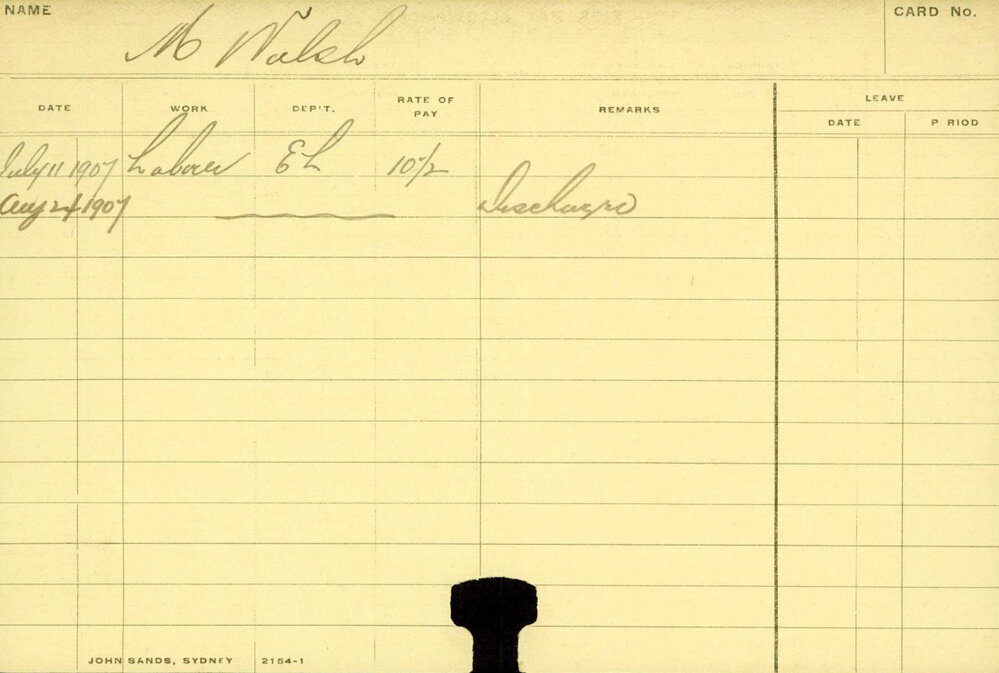 NAME M Walsh CARD No.
DATE WORK DEP'T. RATE OF PAY REMARKS LEAVE
DATE P RIOD
July 11 1907 Laborer EL 10/2
Aug 24 1907 Discharged
JOHN SANDS, SYDNEY 2154-1